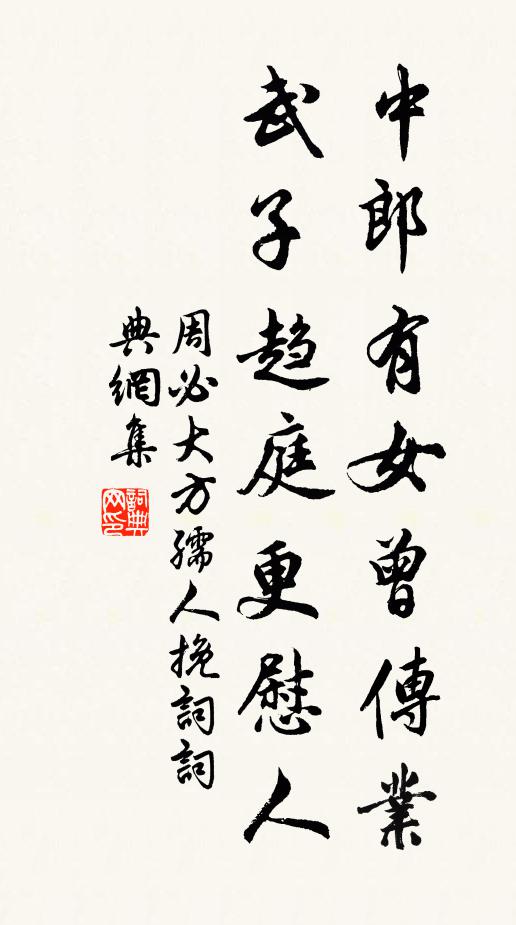 中郎有女曾傳業
武子趋庭更慰人
周必大方孺人挽詞詞
典網集
詞典网印